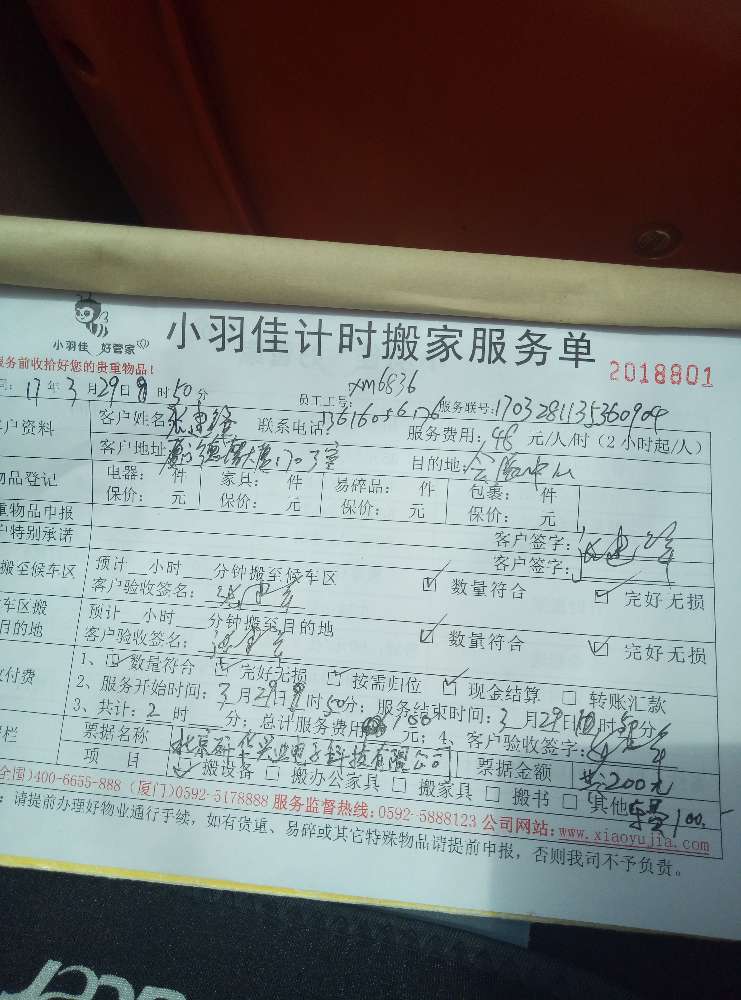 小羽佳 好管家
小羽佳计时搬家服务单
2018801
务前收拾好您的贵重物品！
17年3月29日8时50分
员工工号：xm6836
户资料
客户姓名
联系电话：13616056126
服务联号：1703281135360904
服务费用：48元/人/时（2小时起/人）
客户地址：
1703室
目的地：会
品登记
电器： 件 家具： 件 易碎品： 件 包裹： 件
保价： 元 保价： 元 保价： 元 保价： 元
重物品申报
客户签字：
户特别承诺
客户签字：
搬至候车区
预计 小时 分钟搬至候车区
☑ 数量符合 ☑ 完好无损
客户验收签名：
车区搬
目的地
预计 小时 分钟搬至目的地
☑ 数量符合 ☑ 完好无损
客户验收签名：
付费
1、☑ 数量符合 ☑ 完好无损 ☑ 按需归位 ☑ 现金结算 □ 转账汇款
2、服务开始时间：3月29日8时50分；服务结束时间：3月29日10时50分
3、共计：2时 分；总计服务费用 100 元；4、客户验收签字：
栏
票据名称
北京研华兴业电子科技有限公司
票据金额
共200元
项 目
☑ 搬设备 □ 搬办公家具 □ 搬家具 □ 搬书 □ 其他 车费100.-
全国)400-6655-888 (厦门)0592-5178888 服务监督热线：0592-5888123 公司网站：www.xiaoyujia.com
：请提前办理好物业通行手续，如有货重、易碎或其它特殊物品请提前申报，否则我司不予负责。
acer